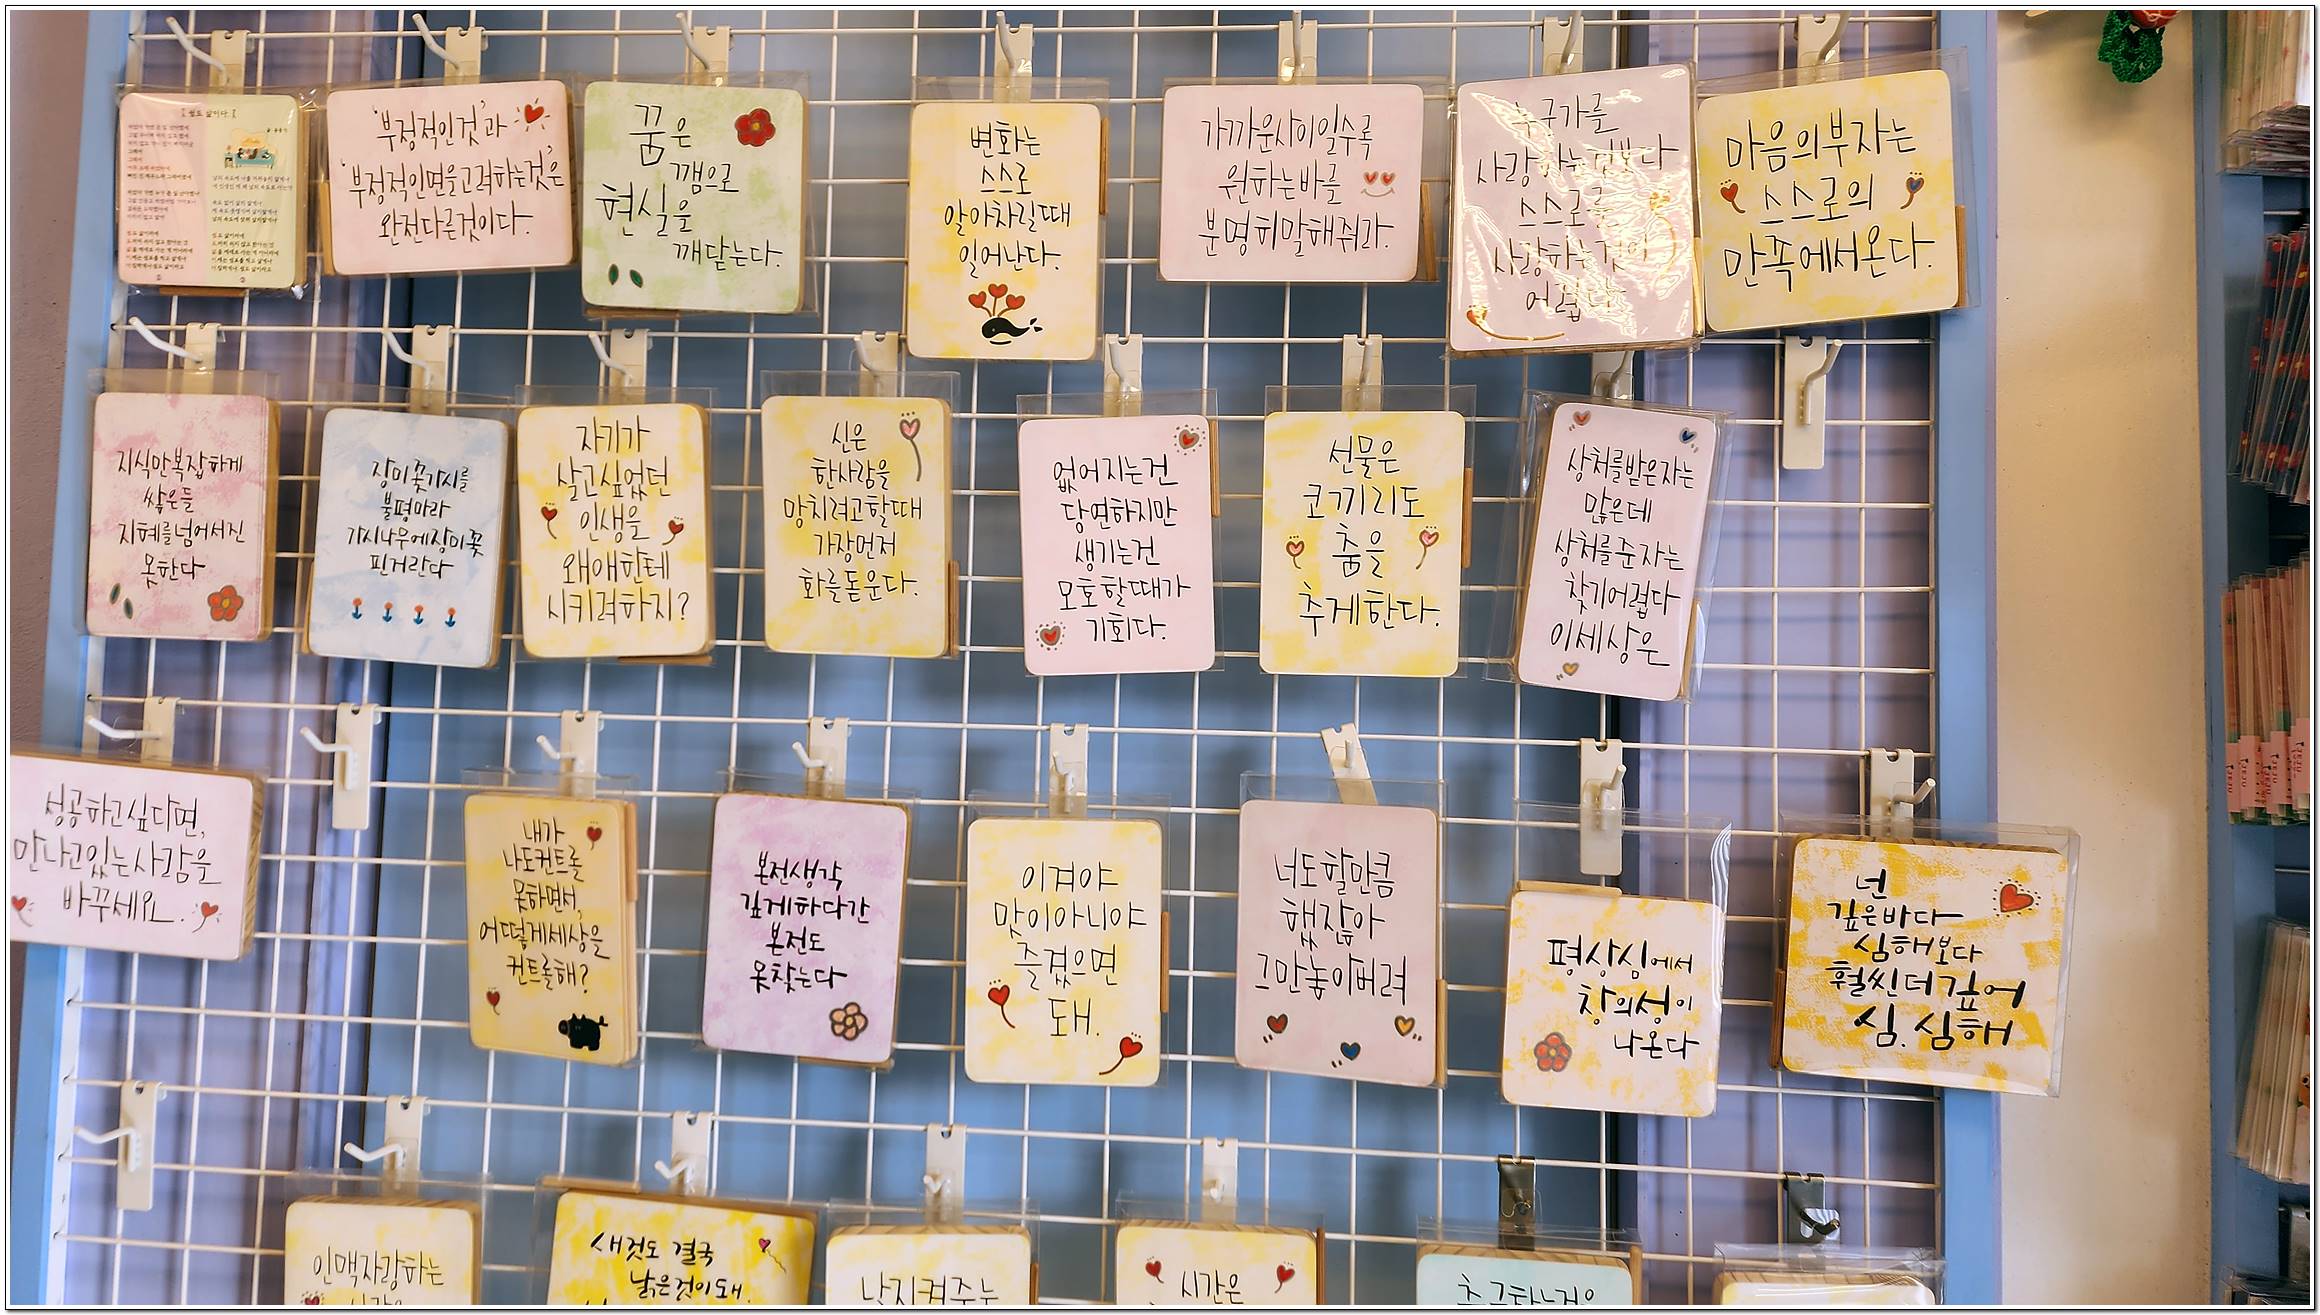 쉼도 삶이다
'부정적인것'과
'부정적인면을고려하는것'은
완전다른것이다.
꿈은
깸으로
현실을
깨닫는다.
변화는
스스로
알아차릴때
일어난다.
가까운사이일수록
원하는바를
분명히말해줘라.
누군가를
사랑하는것보다
스스로를
사랑하는것이
어렵다
마음의부자는
스스로의
만족에서온다.
지식만복잡하게
쌓은들
지혜를넘어서진
못한다
장미꽃가시를
불평마라
가시나무에장미꽃
핀거란다
자기가
살고싶었던
인생을
왜애한테
시키려하지?
신은
한사람을
망치려고할때
가장먼저
화를돋운다.
없어지는건
당연하지만
생기는건
모호할때가
기회다.
선물은
코끼리도
춤을
추게한다.
상처를받은자는
많은데
상처를준자는
찾기어렵다
이세상은
성공하고싶다면,
만나고있는사람을
바꾸세요.
내가
나도컨트롤
못하면서,
어떻게세상을
컨트롤해?
본전생각
깊게하다간
본전도
못찾는다
이겨야
맛이아니야
즐겼으면
돼.
너도할만큼
했잖아
그만놓아버려
평상심에서
창의성이
나온다
넌
깊은바다
심해보다
훨씬더깊어
심.심해
인맥자랑하는
새것도 결국
낡은것이돼.
날지켜주는
시간은